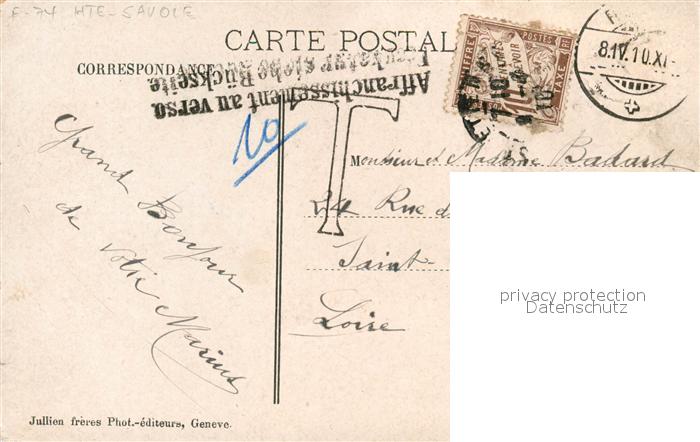 F-74 HTE-SAVOIE
CARTE POSTAL
CORRESPONDANCE
Affranchissement au verso
Frankatur siehe Rückseite
10
T
8.IV.10.XI
Monsieur et Madame Badard
24 Rue d
Saint-
Loire
Grand Bonjour
de votre Marius
privacy protection
Datenschutz
Jullien frères Phot.-éditeurs, Geneve.